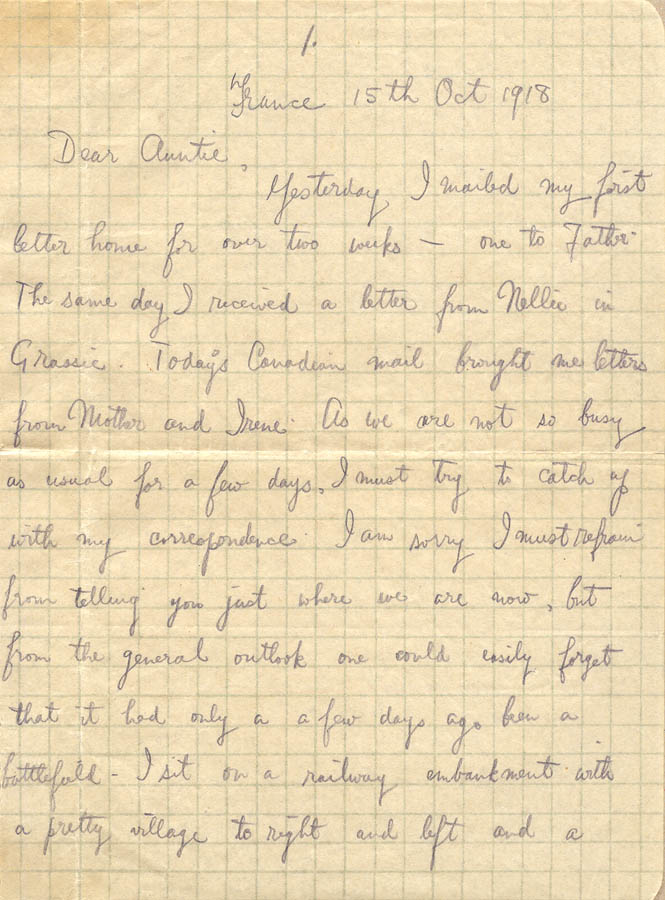 1.
France 15th Oct 1918
Dear Auntie,
Yesterday I mailed my first
letter home for over two weeks – one to Father.
The same day I received a letter from Nellie in
Grassie. Todays Canadian mail brought me letters
from Mother and Irene. As we are not so busy
as usual for a few days, I must try to catch up
with my correspondence. I am sorry I must refrain
from telling you just where we are now, but
from the general outlook one could easily forget
that it had only a a few days ago been a
battlefield – I sit on a railway embankment with
a pretty village to right and left and a